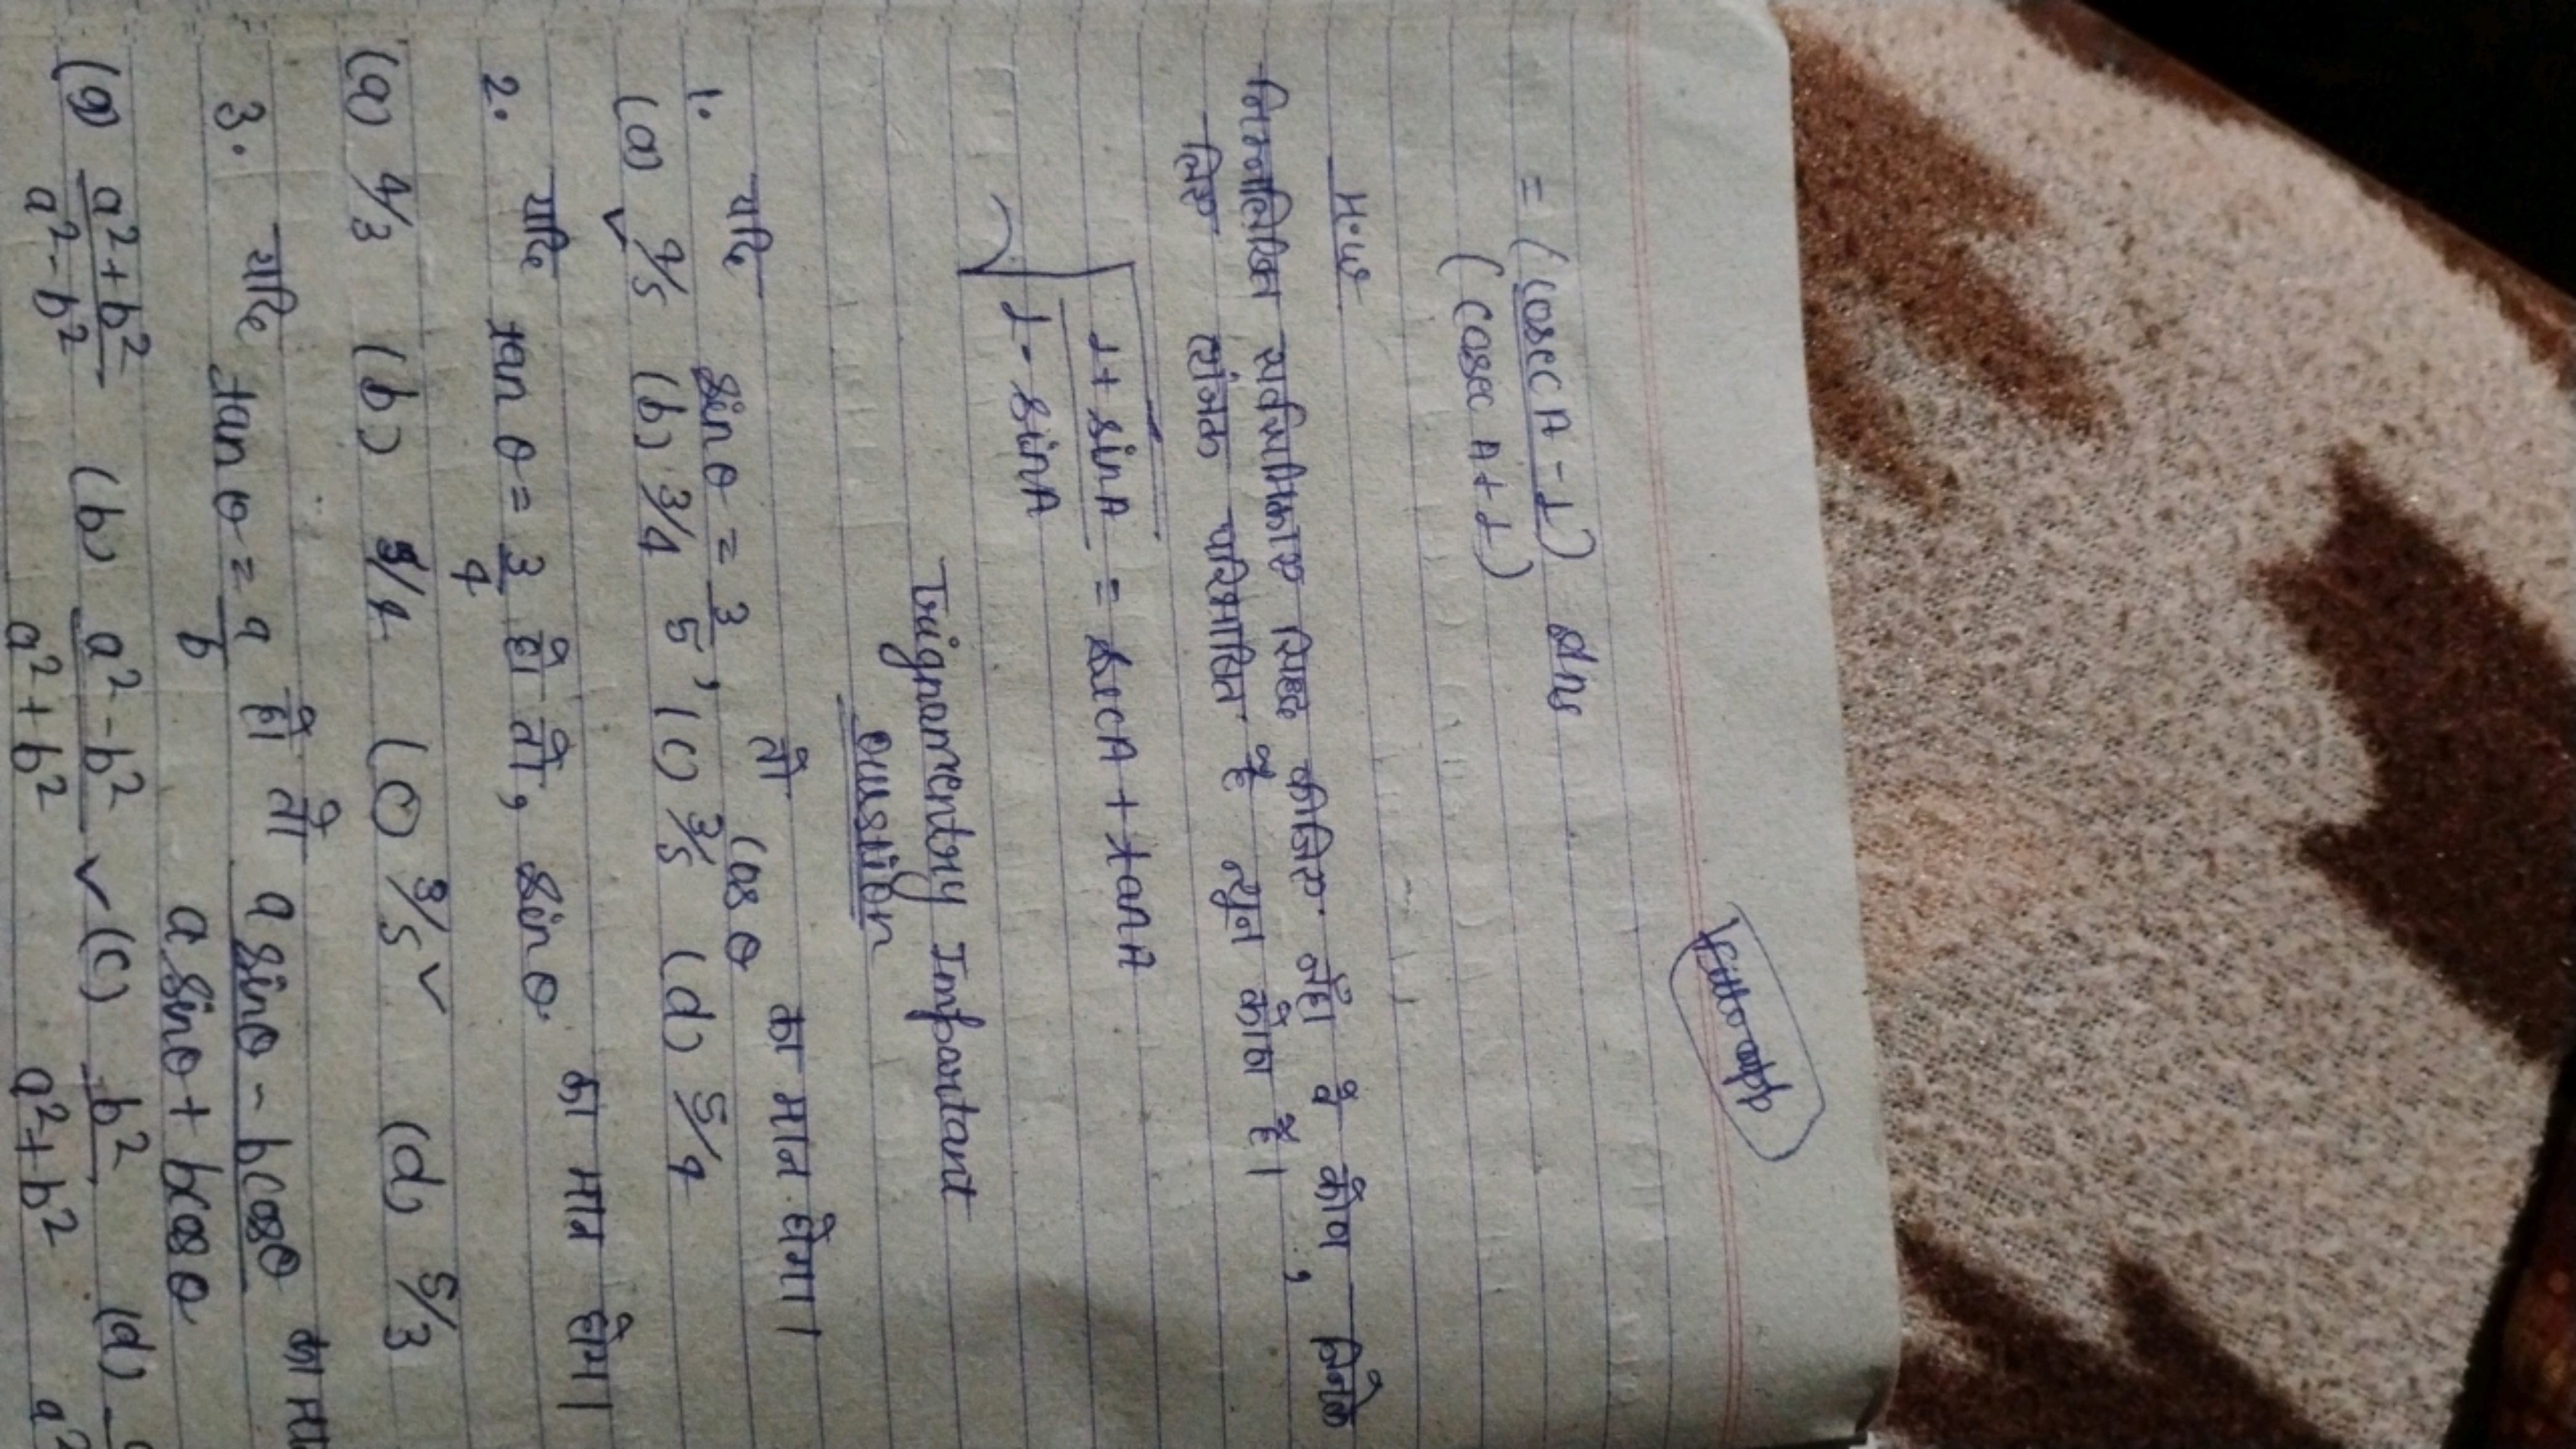 = (cosec A - 1) Ans
(cosec A + 1)
H.W
निम्नलिखित सर्वसमिकाए सिद्ध कीजिए जँहा वे कोण, जिनके
लिए व्यंजक परिभाषित है न्यून कोण है।
√1 + sinA / 1 - sinA = secA + tanA
Trignomentry Important
Question
1. यदि sin θ = 3/5, तो cos θ का मान होगा।
(a) 4/5 (b) 3/4 (c) 3/5 (d) 5/4
2. यदि tan θ = 3/4 हो तो, sin θ का मान होगा।
(a) 4/3 (b) 3/4 (c) 3/5 ✓ (d) 5/3
3. यदि tan θ = a/b हो तो a sin θ - b cos θ / a sin θ + b cos θ का मा
(a) a² + b² / a² - b² (b) a² - b² / a² + b² ✓ (c) b² / a² + b² (d)